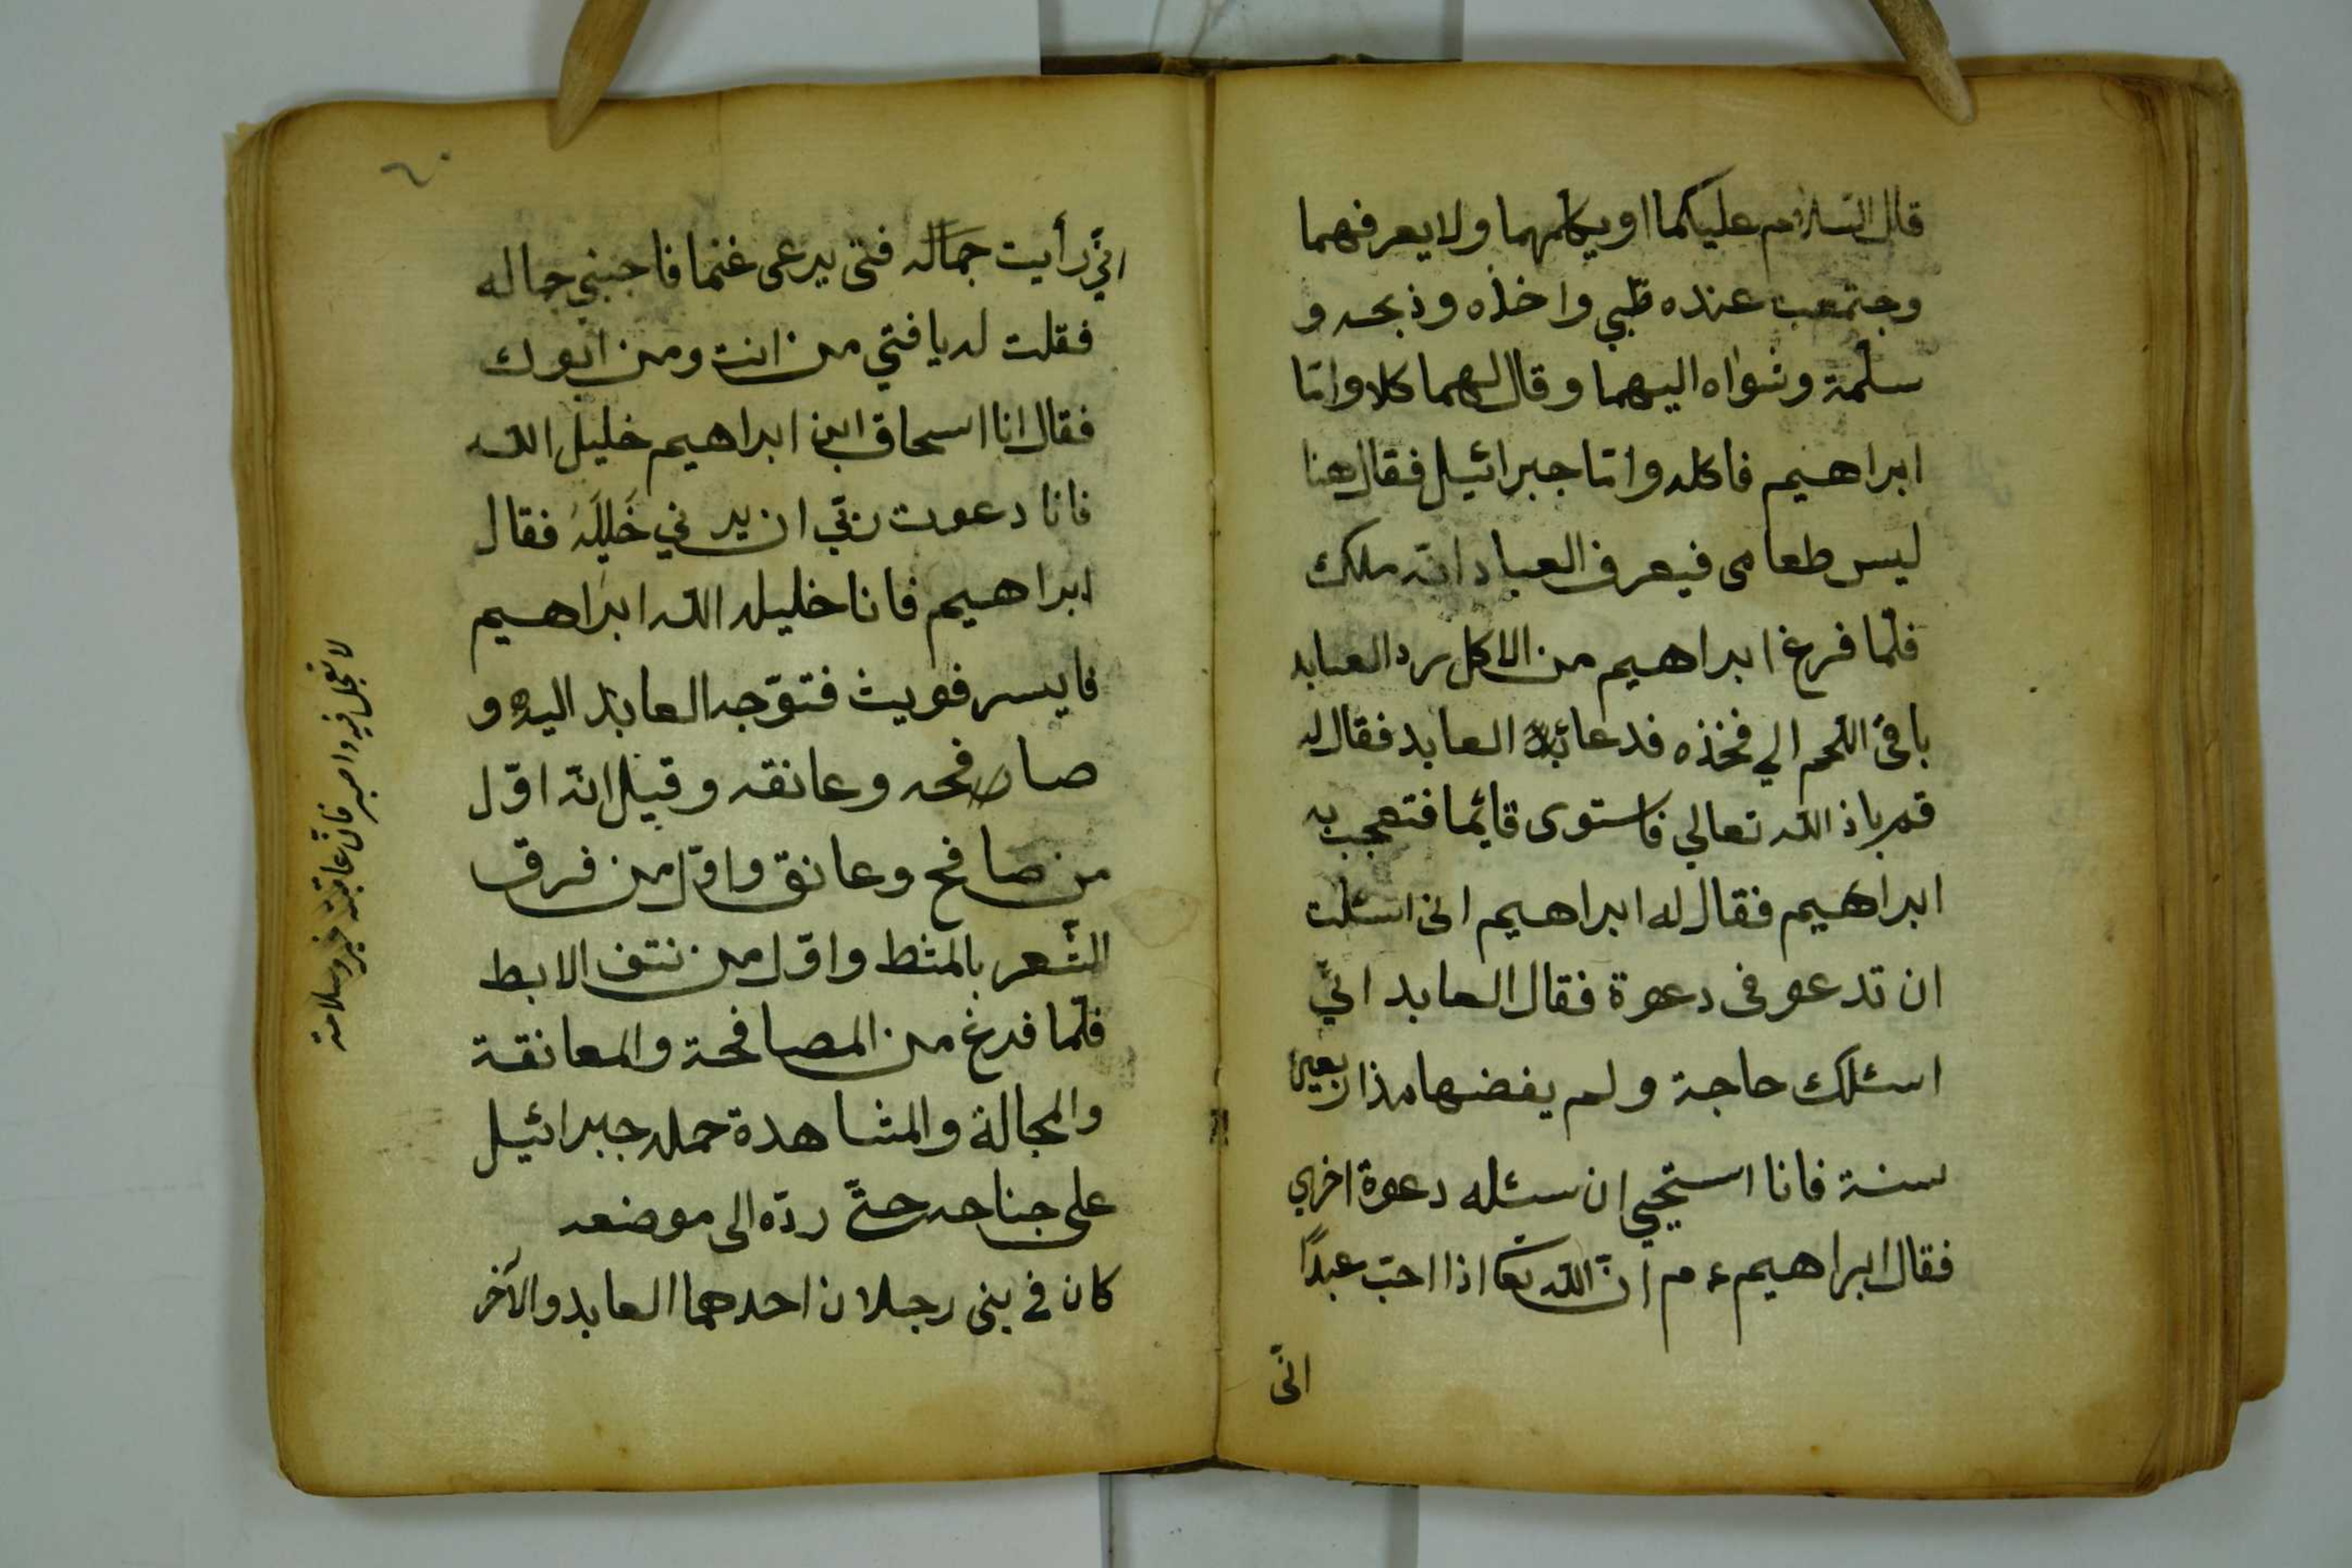 قال السلام عليكما او يكلمهما ولا يعرفهما
وجتمعت عنده ظبي واخذه وذبحه و
سلمة وشواه اليهما وقال لهما كلا وامّا
ابراهيم فاكله وامّا جبرائيل فقال هنا
ليس طعامى فيعرف العباد انّه ملك
فلمّا فرغ ابراهيم من الاكل رد العابد
باقى اللحم الي فخذه فدعا العابد فقال له
قم باذ اللّه تعالي فاستوى قايما فتعجب به
ابراهيم فقال له ابراهيم انى اسئلت
ان تدعو فى دعوة فقال العابد انّي
اسئلك حاجة ولم يفضها مذ اربعين
سنة فانا استحيي ان سئله دعوة اخري
فقال ابراهيم ءم انّ اللّه تعا اذا احبّ عبدًا
انّى
انّي رأيت جماله فتى يرعى غنما فاجبني جماله
فقلت له يا فتي من انت ومن ابوك
فقال انا اسحاق ابن ابراهيم خليل اللّه
فانا دعوت ربّي ان يرني خَليلَهُ فقال
ابراهيم فانا خليله اللّه ابراهيم
فايسر فويث فتوّجه العابد اليه و
صافحه وعانقه وقيل انّه اوّل
من صافح وعانق واوّل من فرق
الشعر بالمثط واوّل من نتف الابط
فلمّا فرغ من المصافحة والمعانقة
والمجالة والمشاهدة حمله جبرائيل
على جناحه حتّى ردّه الى موضعه
كان فى بنى رجلان احدهما العابد والآخر
لا تعجل فيه واصبر فانّ عاقبته خير وسلامة